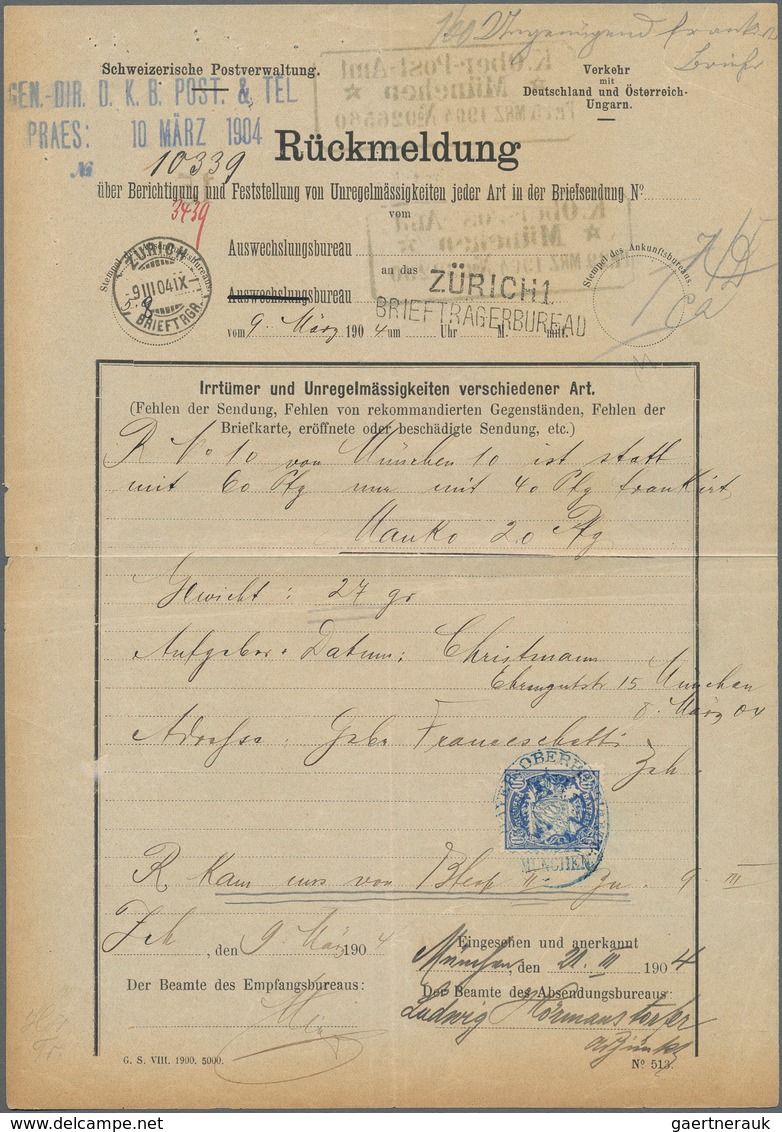 Schweizerische Postverwaltung.
Verkehr
mit
Deutschland und Österreich-
Ungarn.
GEN.-DIR. D. K. B. POST. & TEL
PRAES: 10 MÄRZ 1904
No 10339
K. Ober-Post-Amt
München
Rückmeldung
über Berichtigung und Feststellung von Unregelmässigkeiten jeder Art in der Briefsendung No
3439
vom
Auswechslungsbureau
an das
Auswechslungsbureau
ZÜRICH 1.
BRIEFTRÄGERBUREAU
vom 9. März 1904 um Uhr M. mitt.
Stempel des Ankunftsbureaus.
ZÜRICH
9 III 04 IX
BRIEFTRGR.
Irrtümer und Unregelmässigkeiten verschiedener Art.
(Fehlen der Sendung, Fehlen von rekommandierten Gegenständen, Fehlen der
Briefkarte, eröffnete oder beschädigte Sendung, etc.)
R No 10 von München 10 ist statt
mit 60 Pfg nur mit 40 Pfg frankirt,
Manko 20 Pfg
Gewicht: 27 gr
Aufgeber & Datum: Christmann
Ehrengutstr 15 München
8. März 04
Adresse: Gebr Franceschetti
Zch.
MÜNCHEN
R kam uns von zu. 9 III
Zch, den 9. März 1904
Eingesehen und anerkannt
München, den 21. III 1904
Der Beamte des Empfangsbureaus:
Der Beamte des Absendungsbureaus:
Ludwig Hörmanstorfer
Adjunkt
G. S. VIII. 1900. 5000.
No 513.
gaertnerauk